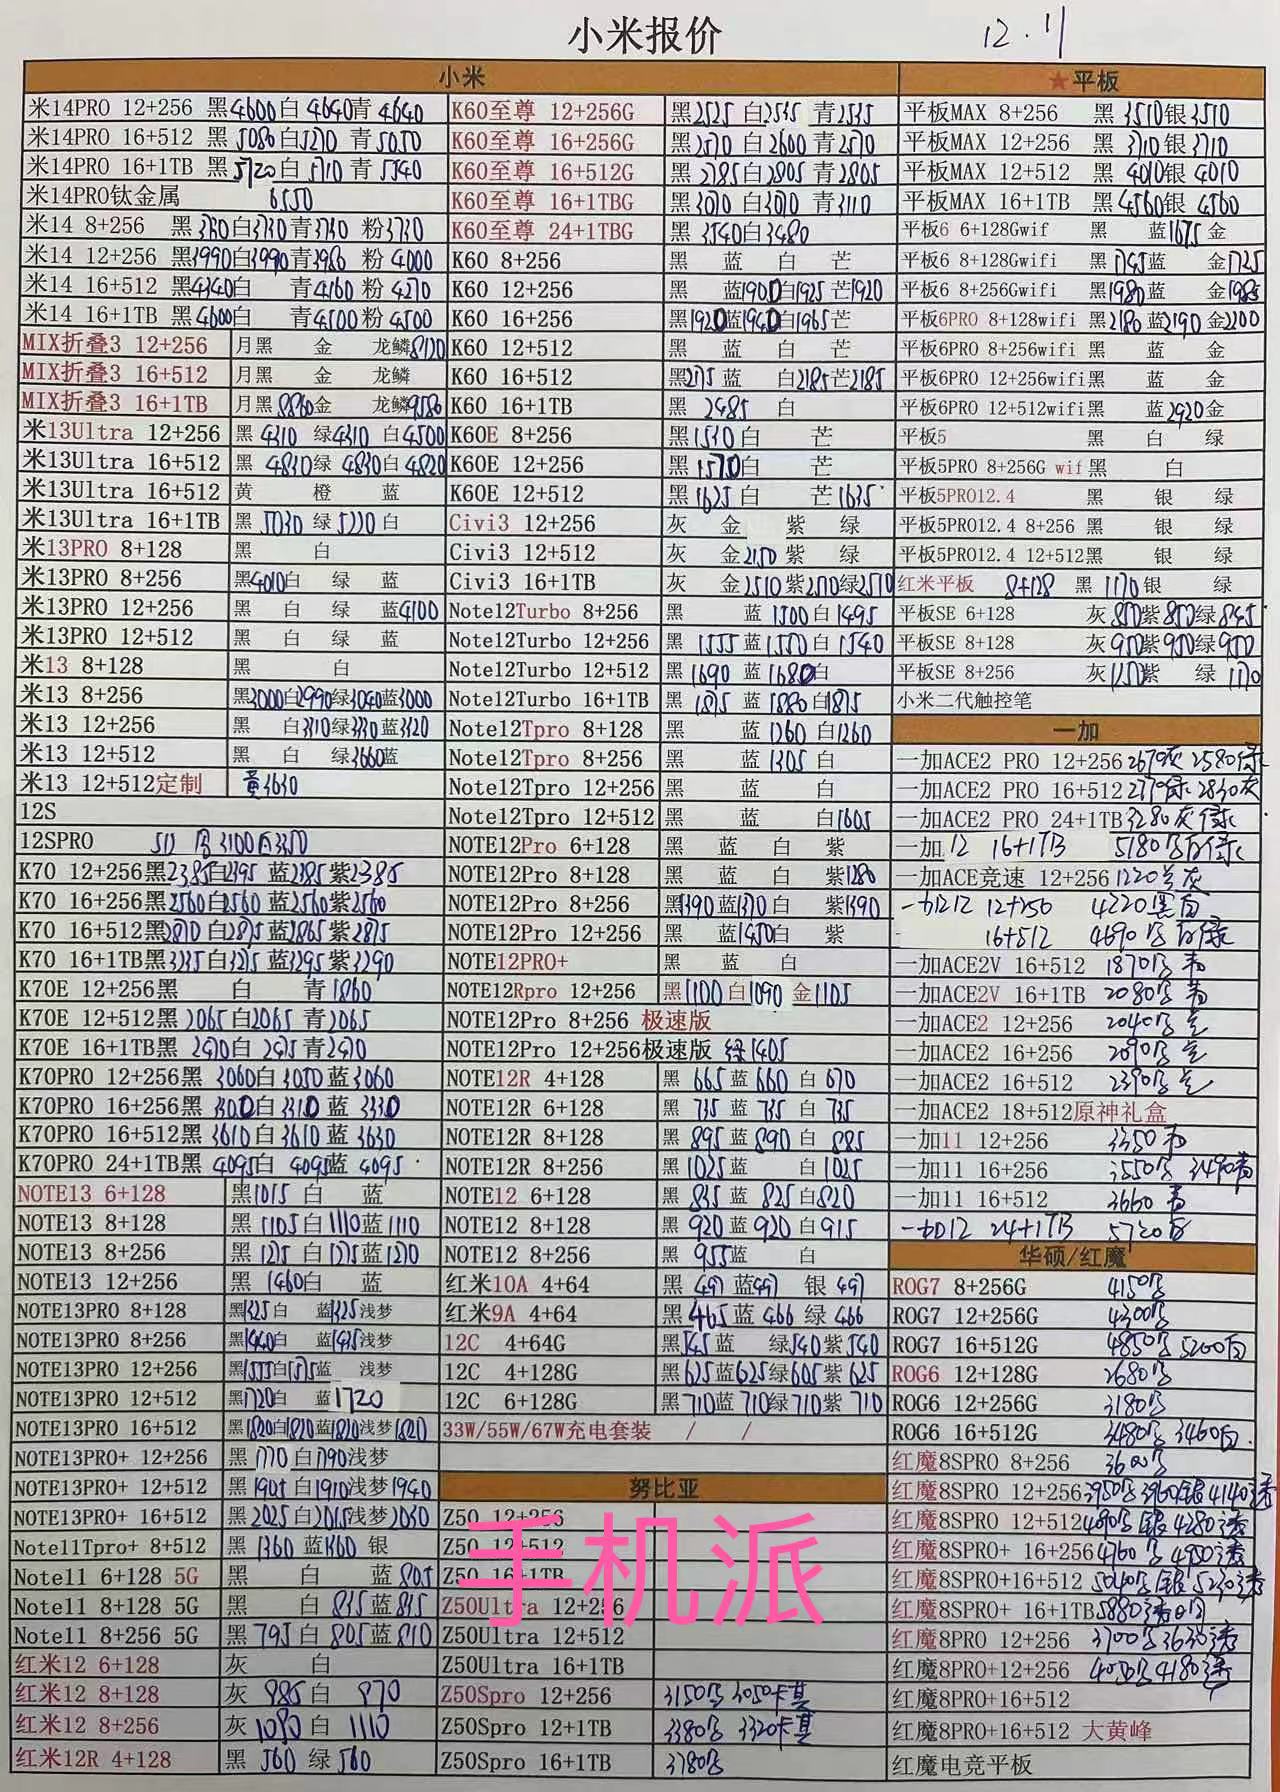 小米报价
12.11
小米
米14PRO 12+256 黑4600白4640青4640
米14PRO 16+512 黑5080白5270青5050
米14PRO 16+1TB 黑5720白 青5540
米14PRO钛金属 6550
米14 8+256 黑 白3730青 粉3730
米14 12+256 黑3990白3990青3980 粉4000
米14 16+512 黑4340白 青4160 粉4270
米14 16+1TB 黑4600白 青4500粉4500
MIX折叠3 12+256 月黑 金 龙鳞8120
MIX折叠3 16+512 月黑 金 龙鳞
MIX折叠3 16+1TB 月黑8860金 龙鳞9580
米13Ultra 12+256 黑4310 绿4310 白4500
米13Ultra 16+512 黑4830绿4830白4820
米13Ultra 16+512 黄 橙 蓝
米13Ultra 16+1TB 黑5030 绿5220白
米13PRO 8+128 黑 白
米13PRO 8+256 黑4010白 绿 蓝
米13PRO 12+256 黑 白 绿 蓝4100
米13PRO 12+512 黑 白 绿 蓝
米13 8+128 黑 白
米13 8+256 黑3000白2990绿3040蓝3000
米13 12+256 黑 白3310绿3330蓝3320
米13 12+512 黑 白 绿3660蓝
米13 12+512定制 黄3630
12S
12SPRO
K70 12+256黑2385白2395 蓝2385紫2385
K70 16+256黑2560白2560 蓝2560紫2560
K70 16+512黑2870白2875蓝2865紫2875
K70 16+1TB黑 白 蓝3295紫3290
K70E 12+256黑 白 青1860
K70E 12+512黑2065白2065 青2065
K70E 16+1TB黑 白 青
K70PRO 12+256黑 3060白3050蓝3060
K70PRO 16+256黑 白3310 蓝 3330
K70PRO 16+512黑3610白3610 蓝3630
K70PRO 24+1TB黑 4095白 4095蓝 4095
NOTE13 6+128 黑1015 白 蓝
NOTE13 8+128 黑1105白1110蓝1110
NOTE13 8+256 黑1275 白1275蓝1270
NOTE13 12+256 黑1460白 蓝
NOTE13PRO 8+128 黑1325白 蓝1325浅梦
NOTE13PRO 8+256 黑1440白 蓝 浅梦
NOTE13PRO 12+256 黑1555白1575蓝 浅梦
NOTE13PRO 12+512 黑1720白 蓝1720
NOTE13PRO 16+512 黑1820白1820蓝1820浅梦1820
NOTE13PRO+ 12+256 黑1770白1790浅梦
NOTE13PRO+ 12+512 黑1905白1910浅梦1940
NOTE13PRO+ 16+512 黑2025白2015浅梦2030
Note11Tpro+ 8+512 黑1360蓝1360 银
Note11 6+128 5G 黑 白 蓝805
Note11 8+128 5G 黑 白835蓝835
Note11 8+256 5G 黑795白805蓝810
红米12 6+128 灰 白
红米12 8+128 灰 885白 870
红米12 8+256 灰 1080白 1110
红米12R 4+128 黑 560 绿 560
K60至尊 12+256G 黑2525 白2535 青2535
K60至尊 16+256G 黑2570 白2600青2570
K60至尊 16+512G 黑2785白2805青2805
K60至尊 16+1TBG 黑3070白3070 青3110
K60至尊 24+1TBG 黑3540白3480
K60 8+256 黑 蓝 白 芒
K60 12+256 黑 蓝1900白1925芒1920
K60 16+256 黑1920蓝1940白1965芒
K60 12+512 黑 蓝 白 芒
K60 16+512 黑2175蓝 白2185芒2185
K60 16+1TB 黑 2485 白
K60E 8+256 黑1530白 芒
K60E 12+256 黑1570白 芒
K60E 12+512 黑1625白 芒1635
Civi3 12+256 灰 金 紫 绿
Civi3 12+512 灰 金2150紫 绿
Civi3 16+1TB 灰 金2510紫2510绿2510
Note12Turbo 8+256 黑 蓝1500白1495
Note12Turbo 12+256 黑1555蓝1550白1540
Note12Turbo 12+512 黑1690 蓝1680白
Note12Turbo 16+1TB 黑1875蓝1880白1875
Note12Tpro 8+128 黑 蓝1260 白1260
Note12Tpro 8+256 黑 蓝1305 白
Note12Tpro 12+256 黑 蓝 白
Note12Tpro 12+512 黑 蓝 白1605
NOTE12Pro 6+128 黑 蓝 白 紫
NOTE12Pro 8+128 黑 蓝 白 紫1280
NOTE12Pro 8+256 黑1390蓝1370白 紫1390
NOTE12Pro 12+256 黑 蓝1450白 紫
NOTE12PRO+ 黑 蓝 白
NOTE12Rpro 12+256 黑1100白1090 金1105
NOTE12Pro 8+256 极速版
NOTE12Pro 12+256极速版 绿1405
NOTE12R 4+128 黑 665蓝660 白670
NOTE12R 6+128 黑 735 蓝 735 白 735
NOTE12R 8+128 黑 895蓝890 白 885
NOTE12R 8+256 黑1025蓝 白1025
NOTE12 6+128 黑 835 蓝 825白820
NOTE12 8+128 黑 920蓝 920白915
NOTE12 8+256 黑 955蓝 白
红米10A 4+64 黑 497 蓝497 银 497
红米9A 4+64 黑465蓝 466 绿 466
12C 4+64G 黑545蓝 绿540紫540
12C 4+128G 黑625蓝625绿605紫625
12C 6+128G 黑710蓝710绿710紫710
33W/55W/67W充电套装 / /
努比亚
Z50 12+256
Z50 12+512
Z50 16+1TB
Z50Ultra 12+256
Z50Ultra 12+512
Z50Ultra 16+1TB
Z50Spro 12+256 3150 3050
Z50Spro 12+1TB 3380 3320
Z50Spro 16+1TB 3780
★平板
平板MAX 8+256 黑3510银3510
平板MAX 12+256 黑3710银3710
平板MAX 12+512 黑4010银4010
平板MAX 16+1TB 黑4560银4560
平板6 6+128Gwif 黑 蓝1675金
平板6 8+128Gwifi 黑1745蓝 金1725
平板6 8+256Gwifi 黑1980蓝 金1985
平板6PRO 8+128wifi 黑2180蓝2190金2200
平板6PRO 8+256wifi 黑 蓝 金
平板6PRO 12+256wifi黑 蓝 金
平板6PRO 12+512wifi黑 蓝2920金
平板5 黑 白 绿
平板5PRO 8+256G wif 黑 白
平板5PRO12.4 黑 银 绿
平板5PRO12.4 8+256 黑 银 绿
平板5PRO12.4 12+512黑 银 绿
红米平板 8+128 黑1170银 绿
平板SE 6+128 灰850紫850绿845
平板SE 8+128 灰950紫950绿950
平板SE 8+256 灰1150紫 绿1170
小米二代触控笔
一加
一加ACE2 PRO 12+256 2670灰 2580绿
一加ACE2 PRO 16+512 绿2830灰
一加ACE2 PRO 24+1TB3280灰绿
一加12 16+1TB 5180黑白绿
一加ACE竞速 12+256 1220 灰
一加12 12+256 4220黑白
16+512 4690黑白绿
一加ACE2V 16+512 1870黑青
一加ACE2V 16+1TB 2080黑青
一加ACE2 12+256 2040黑
一加ACE2 16+256 2090黑
一加ACE2 16+512 2390黑
一加ACE2 18+512原神礼盒
一加11 12+256 3350
一加11 16+256 3550黑 3490青
一加11 16+512 3660青
一加12 24+1TB 5720白
华硕/红魔
ROG7 8+256G 4150黑
ROG7 12+256G 4300黑
ROG7 16+512G 4850黑 5200白
ROG6 12+128G 2680黑
ROG6 12+256G 3180黑
ROG6 16+512G 3480黑 3460白
红魔8SPRO 8+256 3600黑
红魔8SPRO 12+256 3950黑3960银4140透
红魔8SPRO 12+512 4090黑银4280透
红魔8SPRO+ 16+256 4760黑 4950透
红魔8SPRO+16+512 5040黑银5230透
红魔8SPRO+ 16+1TB5880透
红魔8PRO 12+256 3700黑3630透
红魔8PRO+12+256 4050黑4180透
红魔8PRO+16+512
红魔8PRO+16+512 大黄峰
红魔电竞平板
手机派